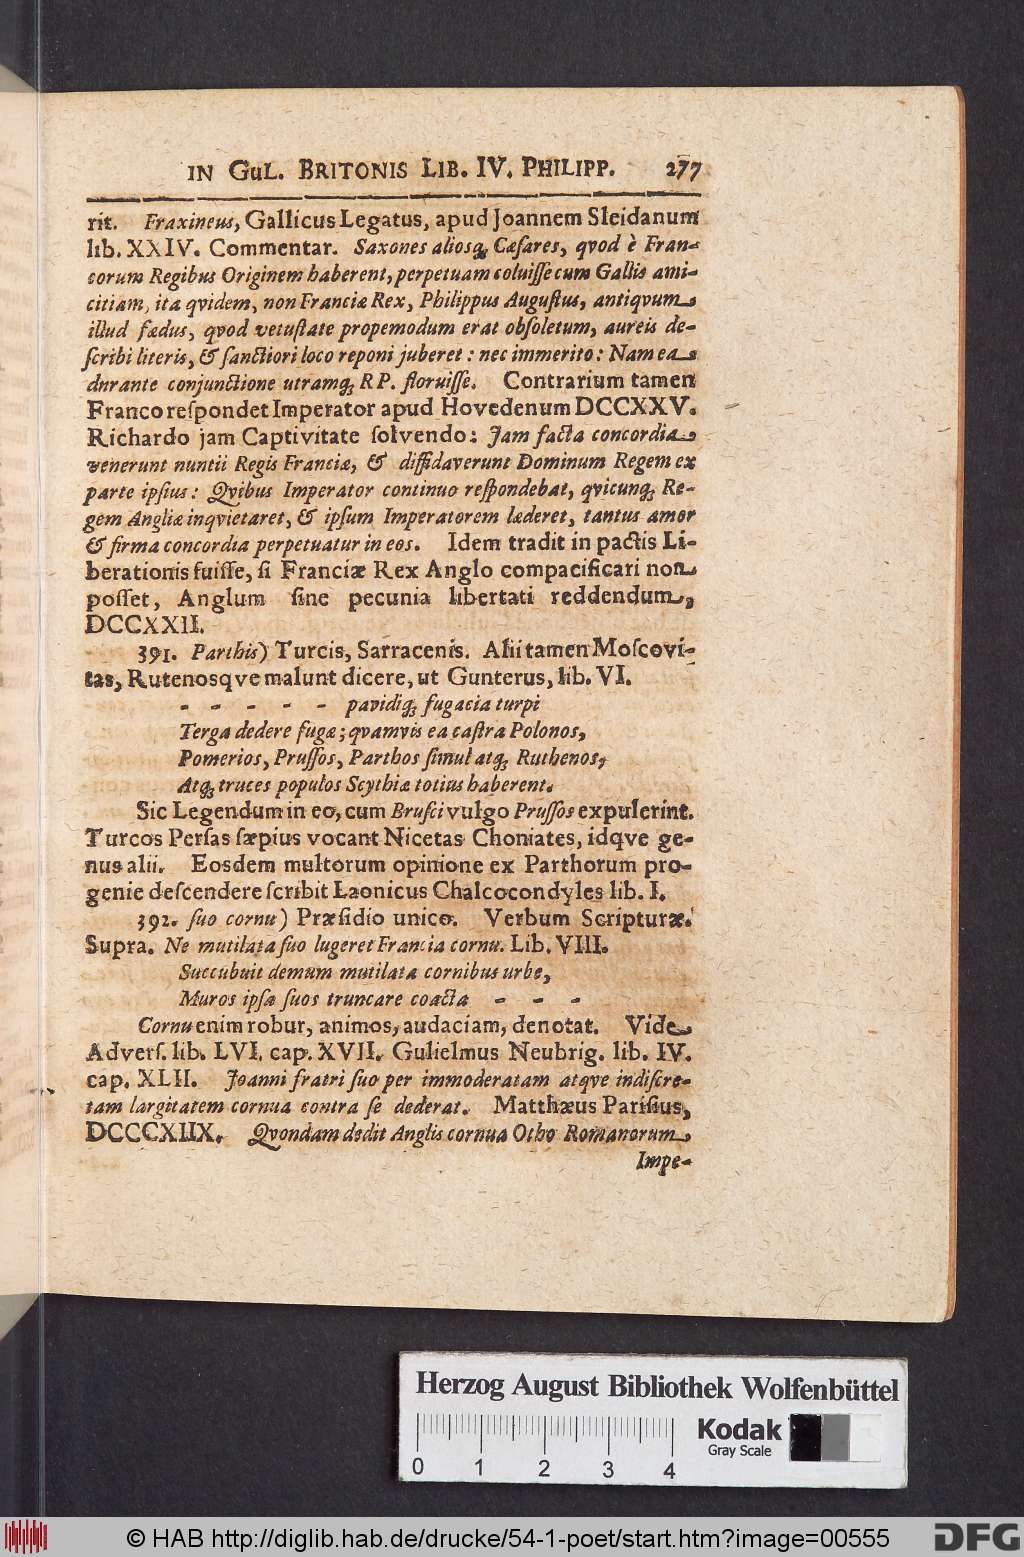 IN GuL. BRITONIS LIB. IV. PHILIPP. 277
rit. Fraxineus, Gallicus Legatus, apud Joannem Sleidanum
lib. XXIV. Commentar. Saxones aliosq; Cæſares, qvod è Fran-
corum Regibus Originem haberent, perpetuam coluiſſe cum Gallis ami-
citiam, ita qvidem, non Franciæ Rex, Philippus Auguſtus, antiqvum
illud fœdus, qvod vetuſtate propemodum erat obſoletum, aureis de-
ſcribi literis, & ſanctiori loco reponi juberet: nec immerito: Nam ea
durante conjunctione utramq; RP. floruiſſe. Contrarium tamen
Franco reſpondet Imperator apud Hovedenum DCCXXV.
Richardo jam Captivitate ſolvendo: Jam facta concordia
venerunt nuntii Regis Franciæ, & diffidaverunt Dominum Regem ex
parte ipſius: Qvibus Imperator continuo reſpondebat, qvicunq; Re-
gem Angliæ inqvietaret, & ipſum Imperatorem læderet, tantus amor
& firma concordia perpetuatur in eos. Idem tradit in pactis Li-
berationis fuiſſe, ſi Franciæ Rex Anglo compacificari non
poſſet, Anglum ſine pecunia libertati reddendum,
DCCXXII.
391. Parthis) Turcis, Sarracenis. Alii tamen Moſcovi-
tas, Rutenosqve malunt dicere, ut Gunterus, lib. VI.
- - - - - pavidiq; fugacia turpi
Terga dedere fugæ; qvamvis ea caſtra Polonos,
Pomerios, Pruſſos, Parthos ſimul atq; Ruthenos,
Atq; truces populos Scythiæ totius haberent.
Sic Legendum in eo, cum Bruſci vulgo Pruſſos expulerint.
Turcos Perſas ſæpius vocant Nicetas Choniates, idqve ge-
nus alii. Eosdem multorum opinione ex Parthorum pro-
genie deſcendere ſcribit Laonicus Chalcocondyles lib. I.
392. ſuo cornu) Præſidio unico. Verbum Scripturæ.
Supra. Ne mutilata ſuo lugeret Francia cornu. Lib. VIII.
Succubuit demum mutilata cornibus urbe,
Muros ipſa ſuos truncare coacta - - -
Cornu enim robur, animos, audaciam, denotat. Vide
Adverſ. lib. LVI. cap. XVII. Gulielmus Neubrig. lib. IV.
cap. XLII. Joanni fratri ſuo per immoderatam atqve indiſcre-
tam largitatem cornua contra ſe dederat. Matthæus Pariſius,
DCCCXIIX. Qvondam dedit Anglis cornua Otho Romanorum
Impe-
Herzog August Bibliothek Wolfenbüttel
Kodak
Gray Scale
0 1 2 3 4
© HAB http://diglib.hab.de/drucke/54-1-poet/start.htm?image=00555
DFG